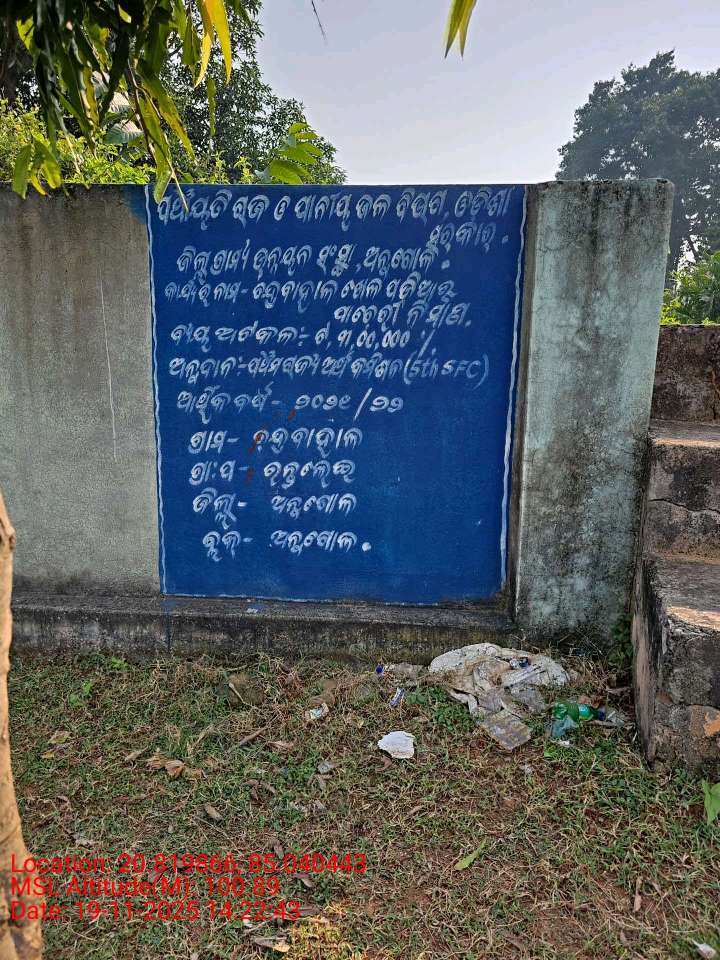 ପଞ୍ଚାୟତି ରାଜ ଓ ପାନୀୟ ଜଳ ବିଭାଗ, ଓଡ଼ିଶା
ସରକାର.
ଜିଲ୍ଲା ଗ୍ରାମ୍ୟ ଉନ୍ନୟନ ସଂସ୍ଥା, ଅନୁଗୋଳ.
କାର୍ଯ୍ୟର ନାମ- ଚନ୍ଦ୍ରବାହାଲ ଖେଳ ପଡିଆର
ପାଚେରୀ ନିର୍ମାଣ.
ବ୍ୟୟ ଅଟକଳ:- ଟ. ୩,୦୦,୦୦୦/
ଅନୁଦାନ:- ପଞ୍ଚମ ରାଜ୍ୟ ଅର୍ଥ କମିଶନ (5th SFC)
ଆର୍ଥିକ ବର୍ଷ - ୨୦୨୧/୨୨
ଗ୍ରାମ- ଚନ୍ଦ୍ରବାହାଲ
ଗ୍ରା:ପ -
ଜିଲ୍ଲା- ଅନୁଗୋଳ
ବ୍ଲକ- ଅନୁଗୋଳ.
Location: 20.819866, 85.040443
MSL Altitude(M): 100.89
Date: 19-11-2025 14:22:43